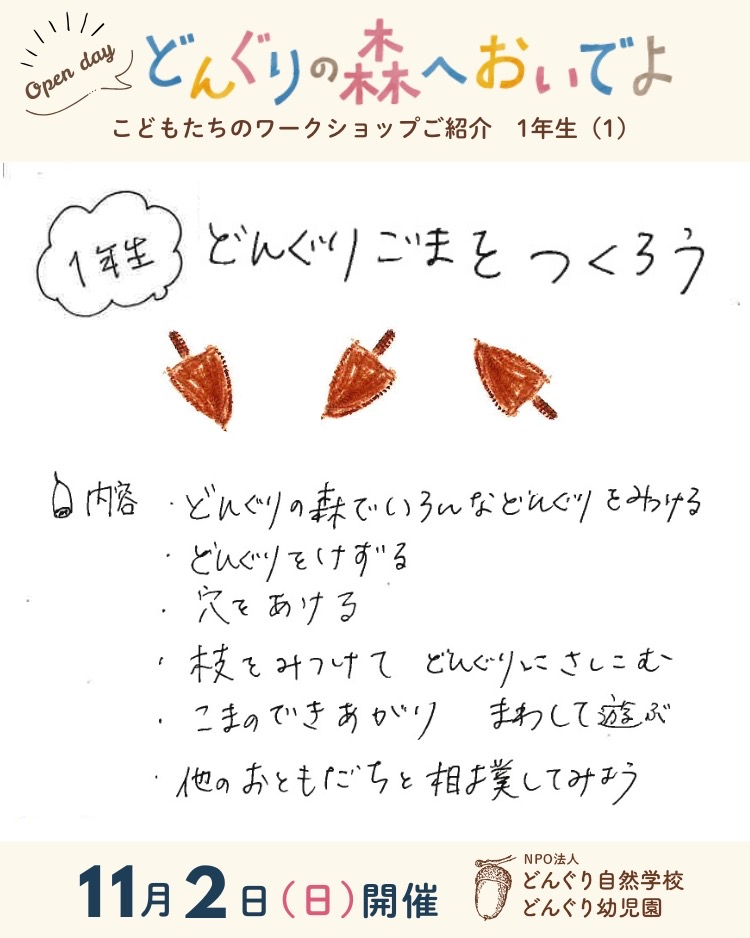 Open day
どんぐりの森へおいでよ
こどもたちのワークショップご紹介 1年生（1）
1年生
どんぐりごまを つくろう
内容 ・どんぐりの森でいろんなどんぐりをみつける
・どんぐりをけずる
・穴をあける
・枝をみつけて どんぐりにさしこむ
・こまのできあがり まわして遊ぶ
・他のおともだちと相撲してみよう
11月2日（日）開催
NPO法人
どんぐり自然学校
どんぐり幼児園